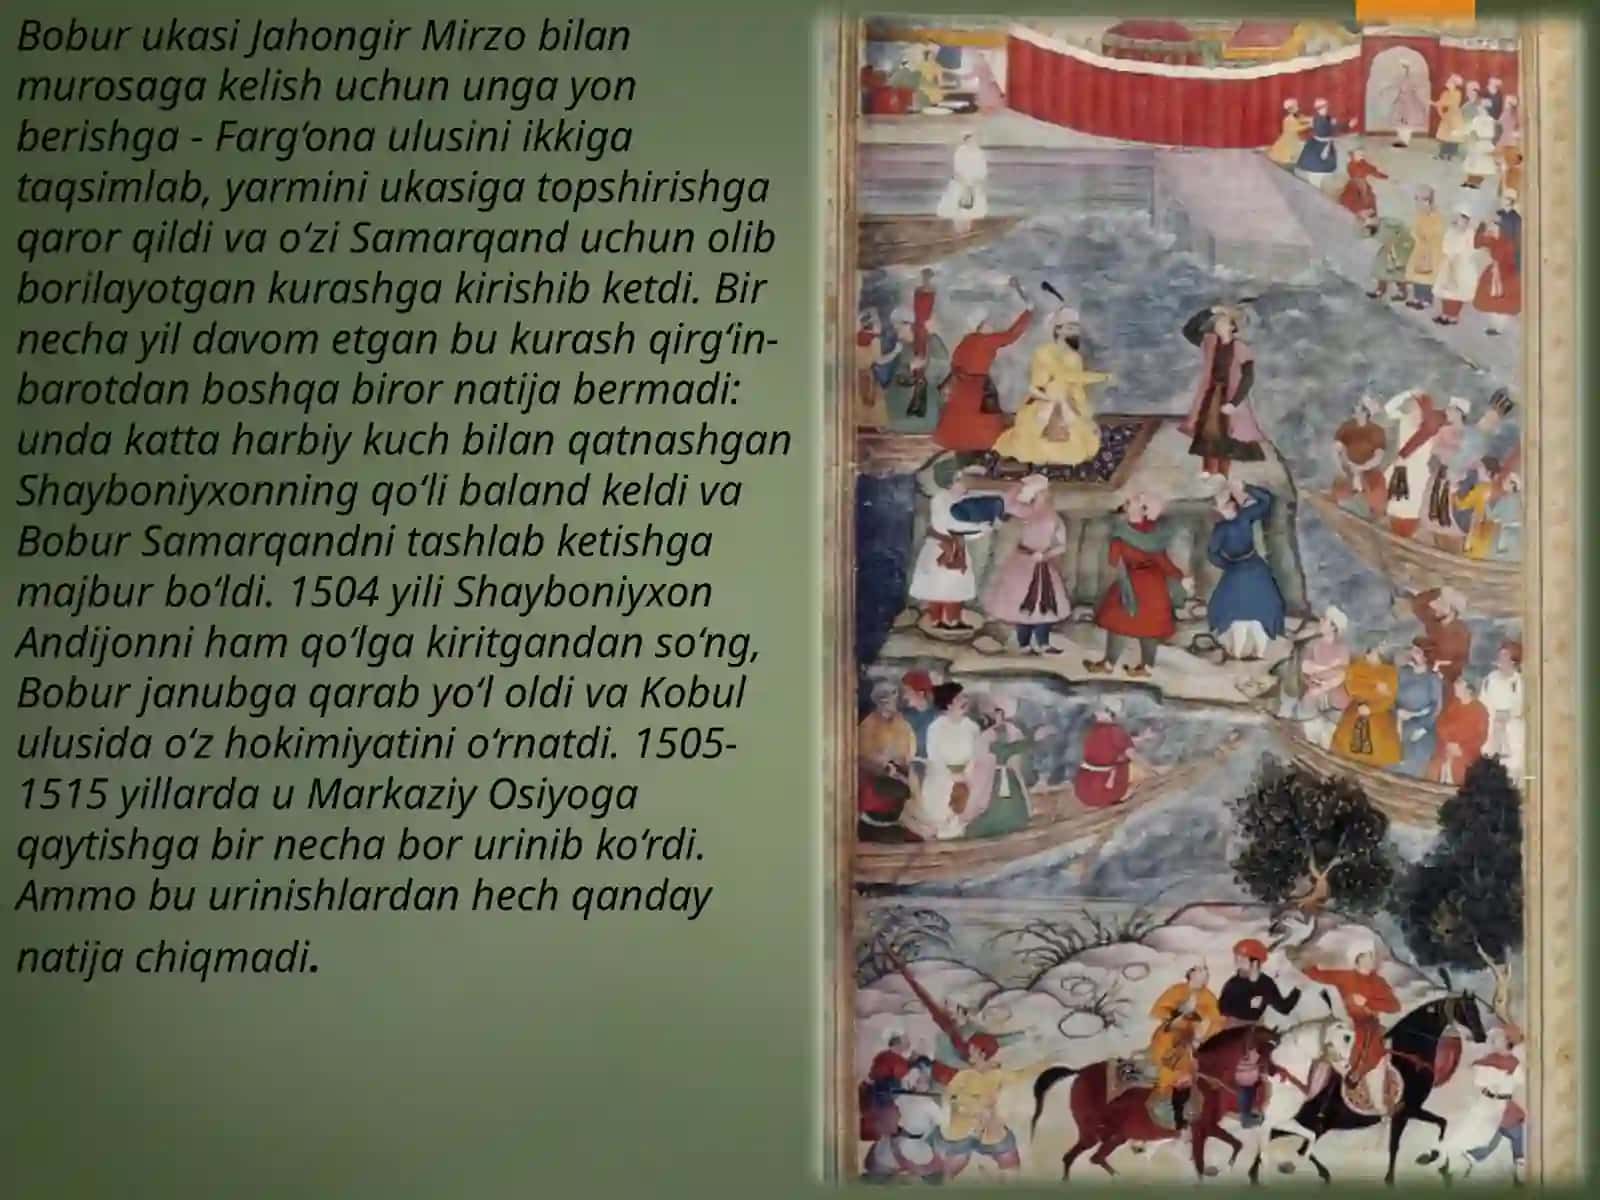 Bobur ukasi Jahongir Mirzo bilan
murosaga kelish uchun unga yon
berishga - Farg‘ona ulusini ikkiga
taqsimlab, yarmini ukasiga topshirishga
qaror qildi va o‘zi Samarqand uchun olib
borilayotgan kurashga kirishib ketdi. Bir
necha yil davom etgan bu kurash qirg‘in-
barotdan boshqa biror natija bermadi:
unda katta harbiy kuch bilan qatnashgan
Shayboniyxonning qo‘li baland keldi va
Bobur Samarqandni tashlab ketishga
majbur bo‘ldi. 1504 yili Shayboniyxon
Andijonni ham qo‘lga kiritgandan so‘ng,
Bobur janubga qarab yo‘l oldi va Kobul
ulusida o‘z hokimiyatini o‘rnatdi. 1505-
1515 yillarda u Markaziy Osiyoga
qaytishga bir necha bor urinib ko‘rdi.
Ammo bu urinishlardan hech qanday
natija chiqmadi.